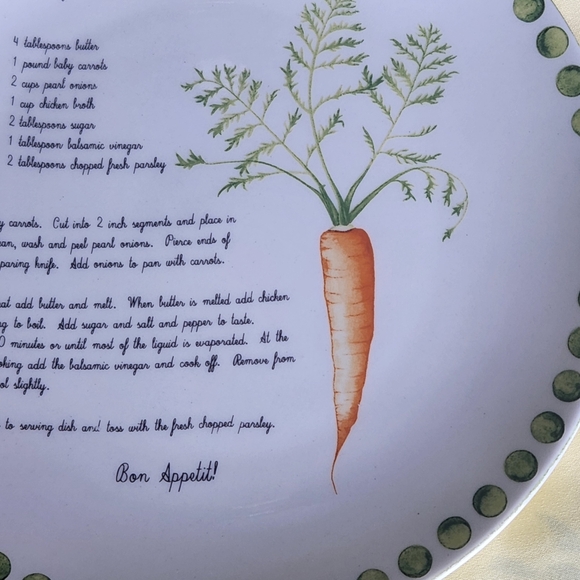 4 tablespoons butter
1 pound baby carrots
2 cups pearl onions
1 cup chicken broth
2 tablespoons sugar
1 tablespoon balsamic vinegar
2 tablespoons chopped fresh parsley
y carrots. Cut into 2 inch segments and place in
an, wash and peel pearl onions. Pierce ends of
paring knife. Add onions to pan with carrots.
eat add butter and melt. When butter is melted add chicken
g to boil. Add sugar and salt and pepper to taste.
0 minutes or until most of the liquid is evaporated. At the
oking add the balsamic vinegar and cook off. Remove from
ol slightly.
to serving dish and toss with the fresh chopped parsley.
Bon Appetit!